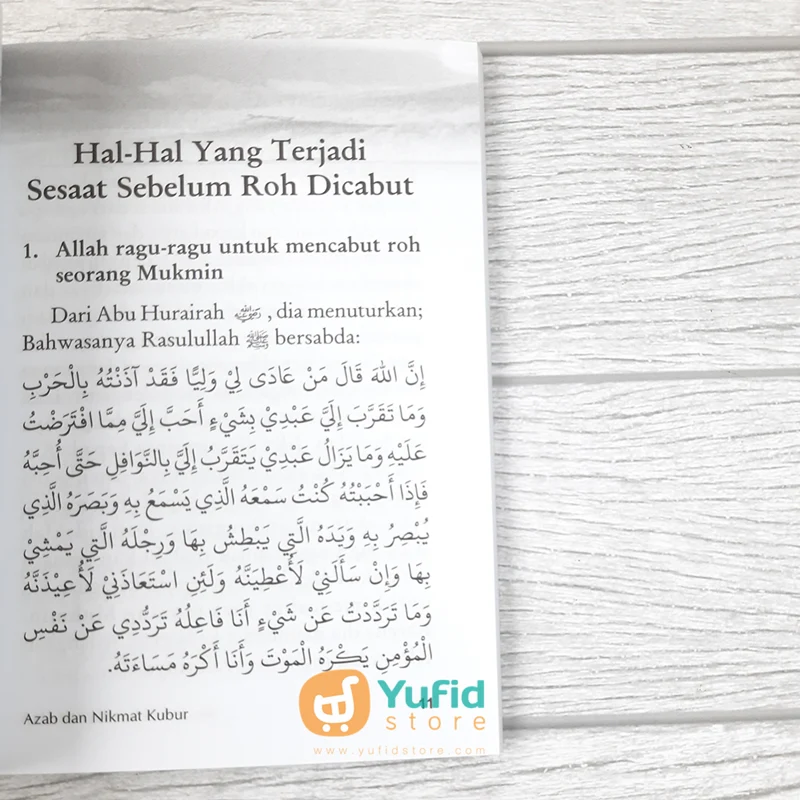 Hal-Hal Yang Terjadi
Sesaat Sebelum Roh Dicabut
1. Allah ragu-ragu untuk mencabut roh
seorang Mukmin
Dari Abu Hurairah رضي الله عنه, dia menuturkan;
Bahwasanya Rasulullah ﷺ bersabda:
إِنَّ اللهَ قَالَ مَنْ عَادَى لِيْ وَلِيًّا فَقَدْ آذَنْتُهُ بِالْحَرْبِ
وَمَا تَقَرَّبَ إِلَيَّ عَبْدِيْ بِشَيْءٍ أَحَبَّ إِلَيَّ مِمَّا افْتَرَضْتُ
عَلَيْهِ وَمَا يَزَالُ عَبْدِيْ يَتَقَرَّبُ إِلَيَّ بِالنَّوَافِلِ حَتَّى أُحِبَّهُ
فَإِذَا أَحْبَبْتُهُ كُنْتُ سَمْعَهُ الَّذِي يَسْمَعُ بِهِ وَبَصَرَهُ الَّذِي
يُبْصِرُ بِهِ وَيَدَهُ الَّتِي يَبْطِشُ بِهَا وَرِجْلَهُ الَّتِي يَمْشِيْ
بِهَا وَإِنْ سَأَلَنِيْ لَأُعْطِيَنَّهُ وَلَئِنِ اسْتَعَاذَنِيْ لَأُعِيْذَنَّهُ
وَمَا تَرَدَّدْتُ عَنْ شَيْءٍ أَنَا فَاعِلُهُ تَرَدُّدِي عَنْ نَفْسِ
الْمُؤْمِنِ يَكْرَهُ الْمَوْتَ وَأَنَا أَكْرَهُ مَسَاءَتَهُ.
Azab dan Nikmat Kubur
11
Yufid
store
www.yufidstore.com